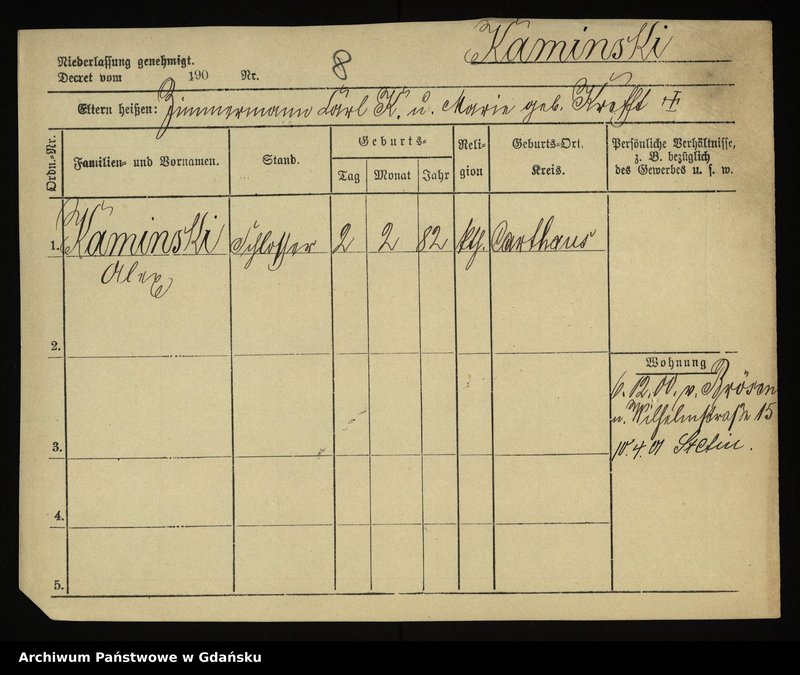 Kaminski
Niederlassung genehmigt.
Decret vom 190 Nr. 8
Eltern heißen: Zimmermann Carl K. u. Marie geb. Krefft
Ordn.-Nr. Familien- und Vornamen. Stand. Geburts- Tag Monat Jahr Religion Geburts-Ort. Kreis. Persönliche Verhältnisse, z. B. bezüglich des Gewerbes u. s. w.
1. Kaminski Schlosser 2 2 82 kth. Carthaus
Alex
2.
Wohnung
6.12.00. v. Brösen
n. Wilhelmstraße 15
3.
10.4.01 Stettin.
4.
5.
Archiwum Państwowe w Gdańsku